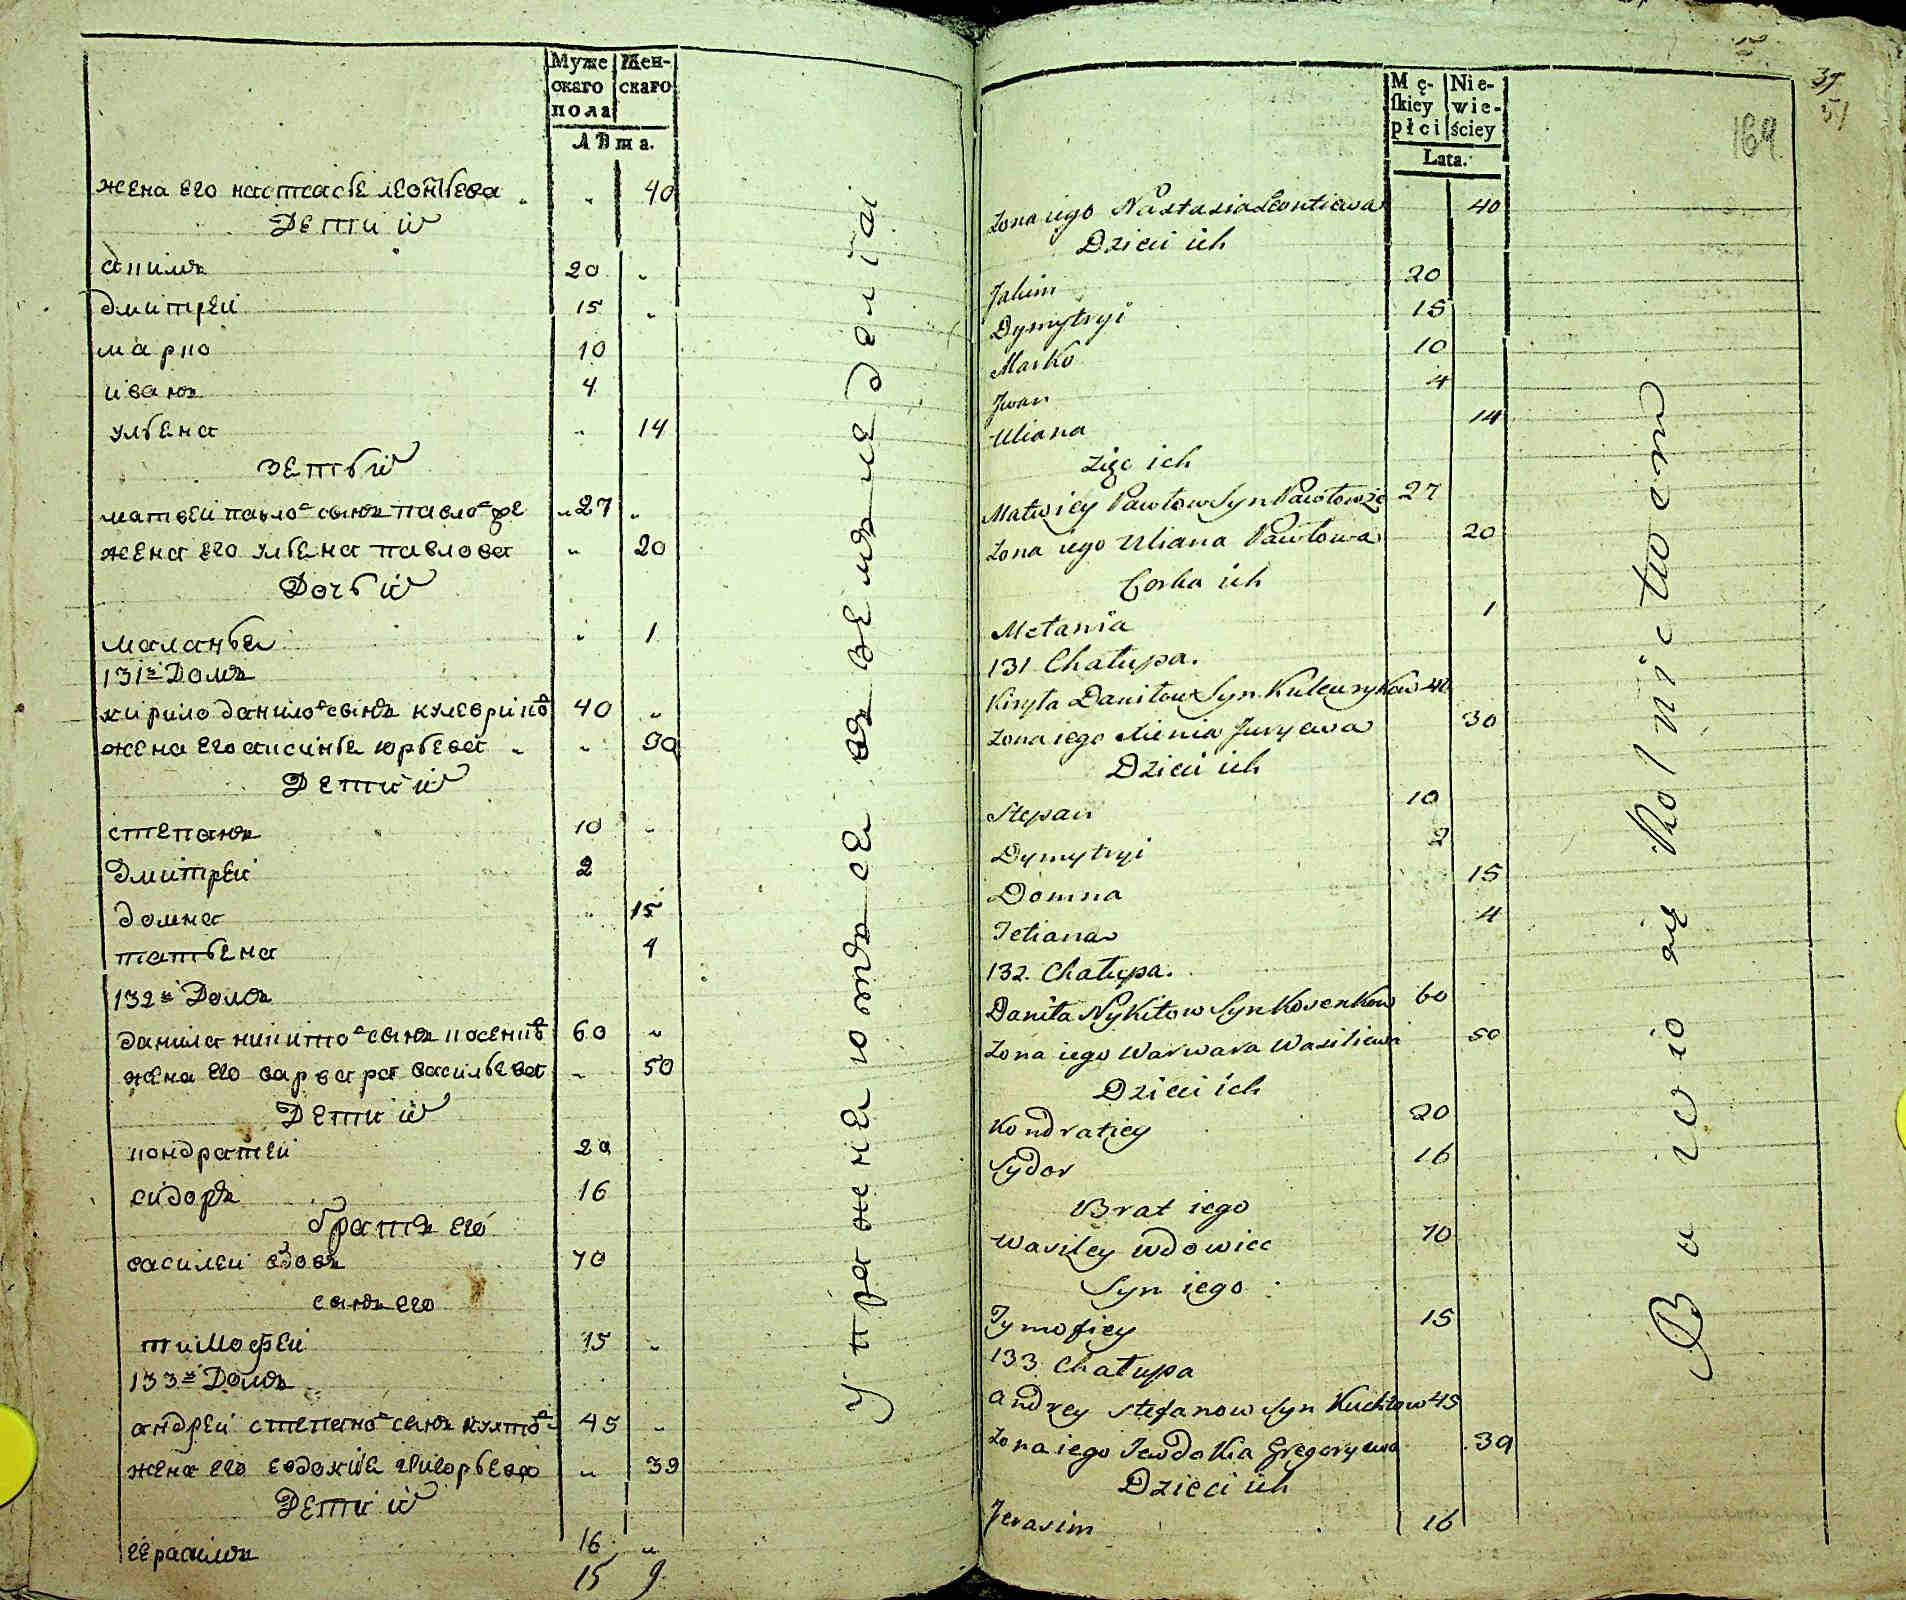 Муже Жен
скаго скаго
пола
Лѣта.
жена его настасье леонтьева " " 40
Дети их
акимъ 20 "
дмитреи 15 "
марко 10
иванъ 4
ульена " 14
зеть их
матвеи павло сынъ " 27 "
жена его ульена павлова " 20
Дочь их
маланье " 1
131й Домъ
кирило данило сынъ кулеврико 40 "
жена его аксинье юрьева " " 30
Дети их
степанъ 10 "
дмитреи 2
домна " 15
татьена 4
132й Домъ
данила никито сынъ косенко 60 "
жена его варвара васильева " 50
Дети их
кондратеи 20
сидоръ 16
братъ его
василеи вдовъ 70
сынъ его
тимофеи 15 "
133й Домъ
андреи степано сынъ кухто 45 "
жена его евдокие григорьева " 39
Дети их
герасимъ 16 "
15 9
Упражнеютсе въ земледелiи
37
51
169
Mę- Nie-
ſkiey wie-
płci ściey
Lata.
Żona iego Nastasia Leontiewa 40
Dzieci ich
Jakim 20
Dymytryi 15
Marko 10
Jwan 4
Uliana 14
Zięc ich
Matwiey Pawłow Syn 27
Żona iego Uliana Pawłowa 20
Corka ich
Mełania 1
131 Chałupa.
Kiryła Daniłow Syn Kulewrykow 40
Żona iego Juryewa 30
Dzieci ich
Stepan 10
Dymytryi 2
Domna 15
Tetiana 4
132. Chałupa.
Daniła Nykitow Syn Kosenkow 60
Żona iego Warwara Wasiliewa 50
Dzieci ich
Kondratiey 20
Sydor 16
Brat iego
Wasiley wdowiec 70
Syn iego
Tymofiey 15
133 Chałupa
Andrey Stefanow Syn Kuchtow 45
Żona iego Jewdokia Gregoryewa 39
Dzieci ich
Jerasim 16
Bawio się Rolnictwem